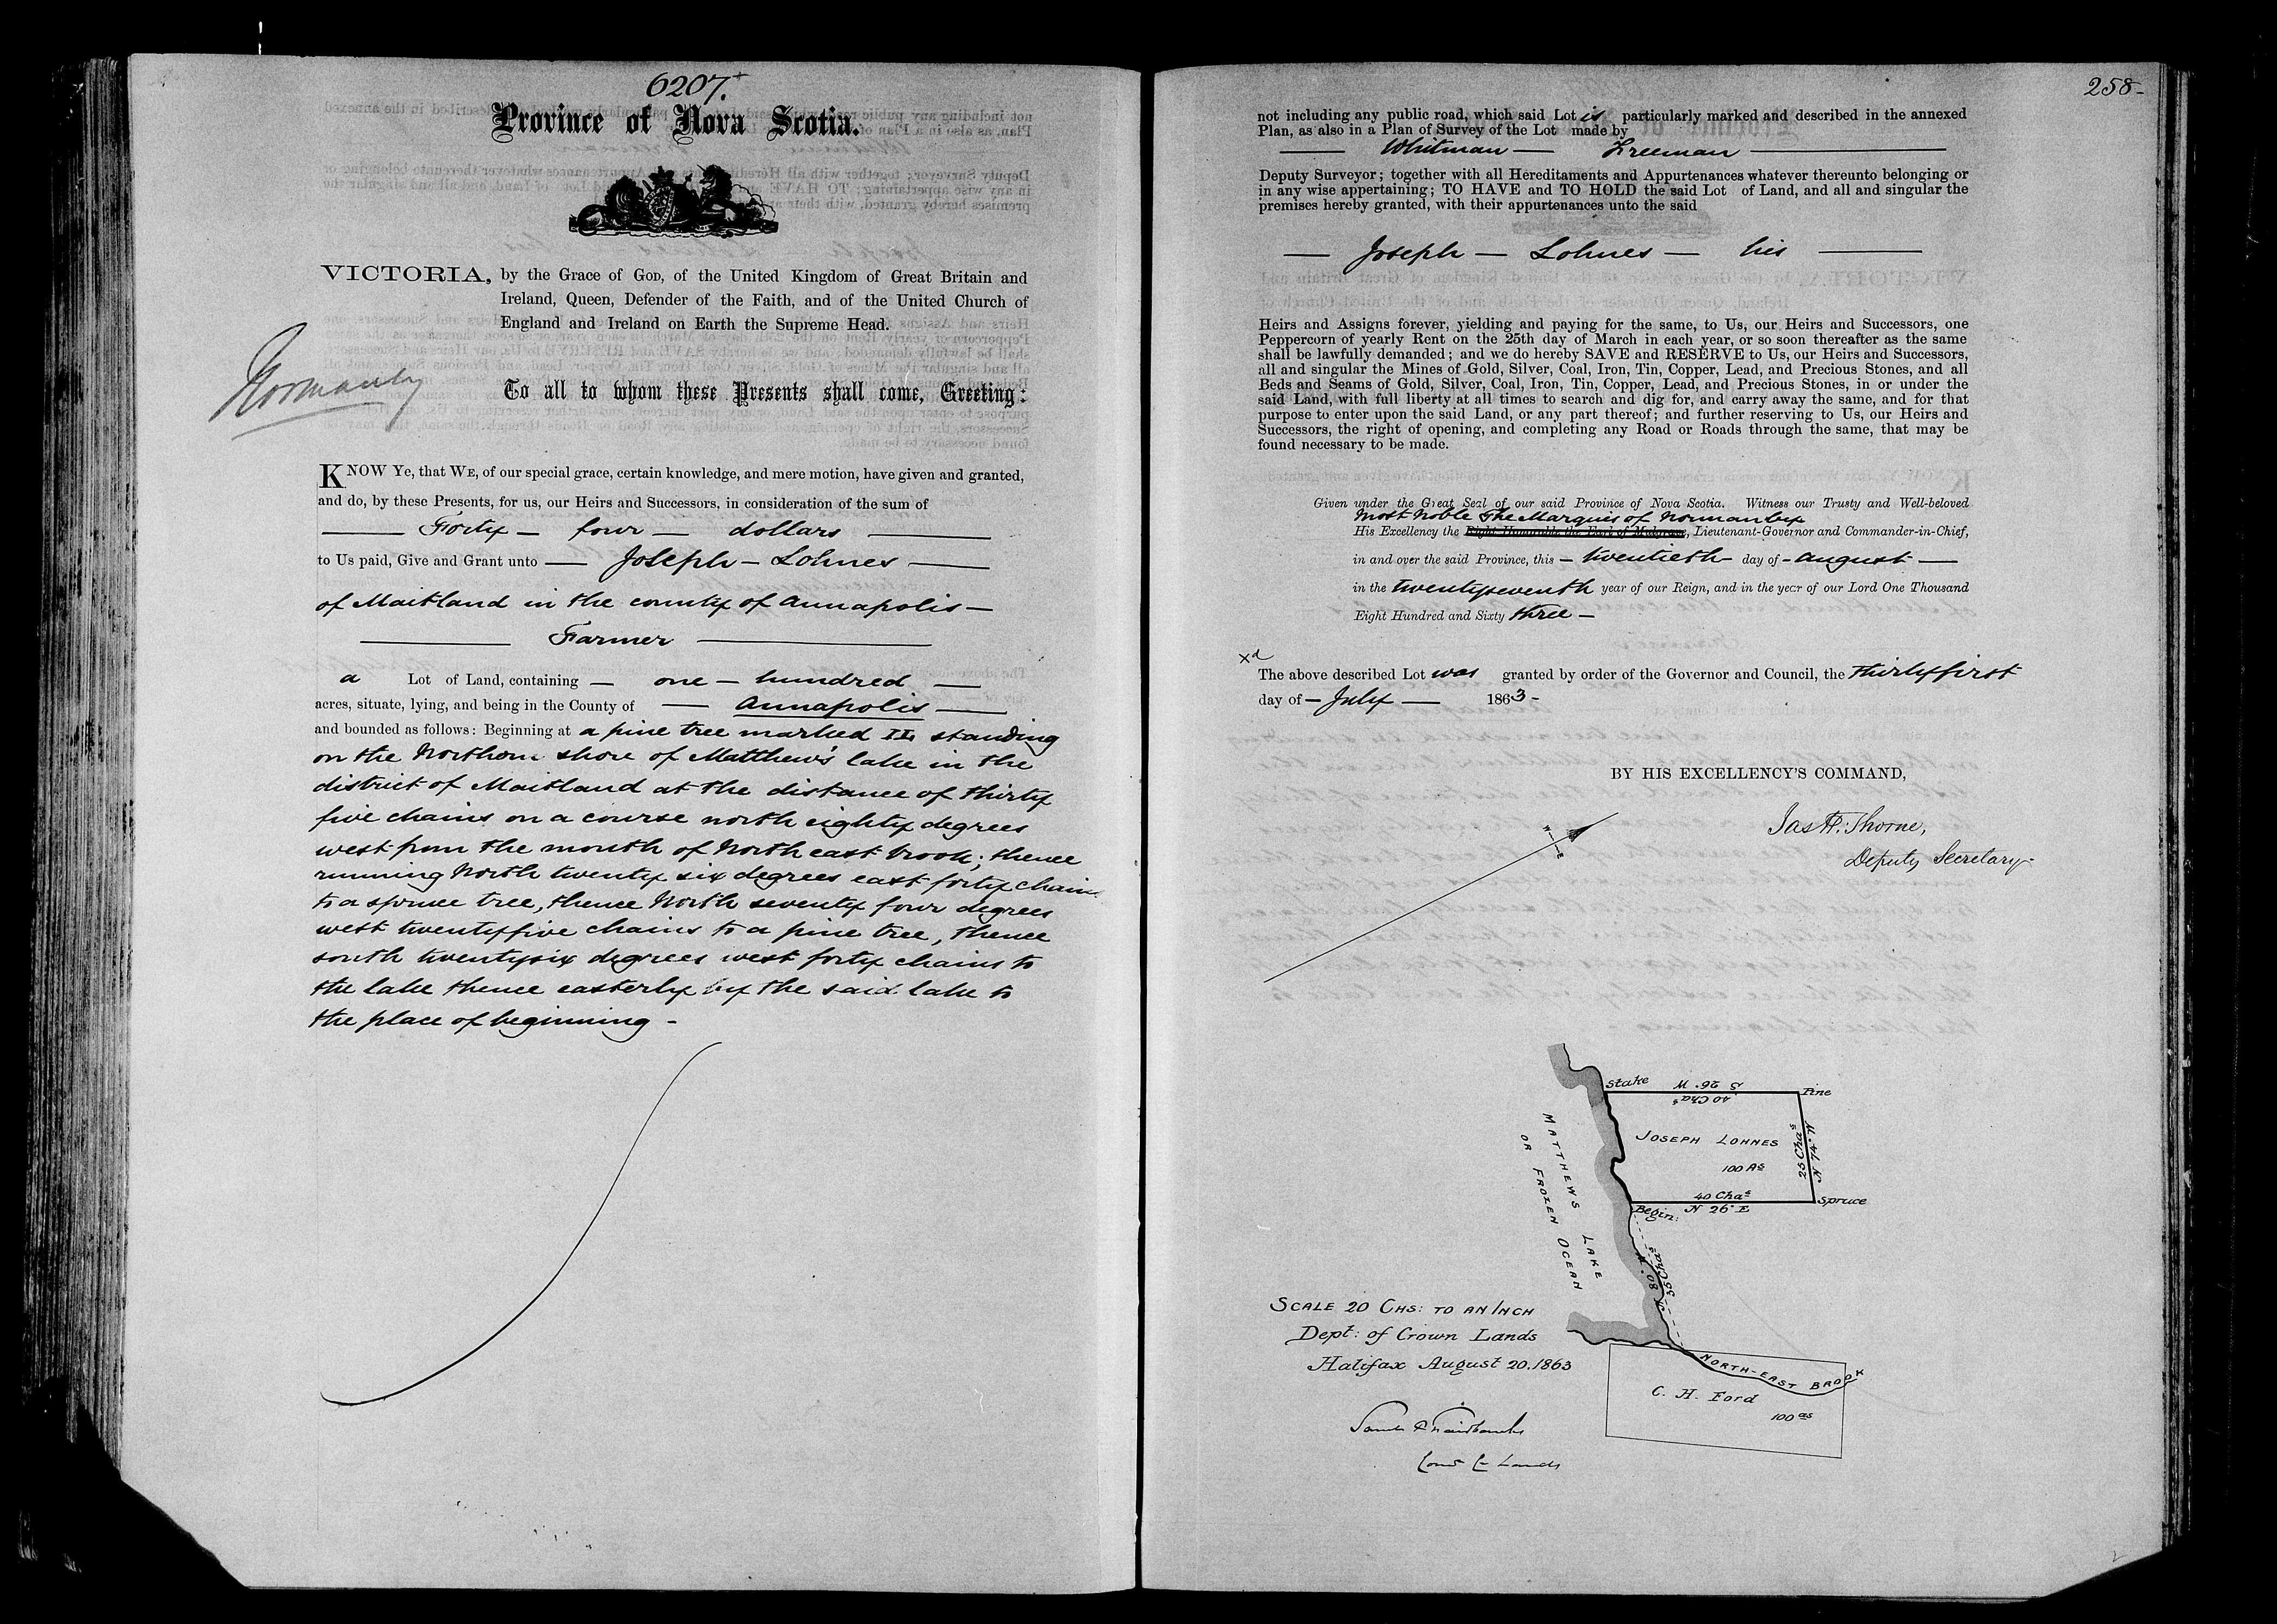 6207.
Province of Nova Scotia.
VICTORIA, by the Grace of GOD, of the United Kingdom of Great Britain and
Ireland, Queen, Defender of the Faith, and of the United Church of
England and Ireland on Earth the Supreme Head.
Normanby
To all to whom these Presents shall come, Greeting:
KNOW YE, that WE, of our special grace, certain knowledge, and mere motion, have given and granted,
and do, by these Presents, for us, our Heirs and Successors, in consideration of the sum of
Forty - four - dollars
to Us paid, Give and Grant unto — Joseph - Lohnes —
of Maitland in the county of Annapolis -
Farmer
a Lot of Land, containing — one - hundred —
acres, situate, lying, and being in the County of — Annapolis —
and bounded as follows: Beginning at a pine tree marked IL standing
on the Northern shore of Matthew's lake in the
district of Maitland at the distance of thirty
five chains on a course north eighty degrees
west from the mouth of North east brook; thence
running North twenty six degrees east forty chains
to a spruce tree, thence North seventy four degrees
west twentyfive chains to a pine tree, thence
south twentysix degrees west forty chains to
the lake thence easterly by the said lake to
the place of beginning -
258-
not including any public road, which said Lot is particularly marked and described in the annexed
Plan, as also in a Plan of Survey of the Lot made by
— Whitman — Freeman —
Deputy Surveyor; together with all Hereditaments and Appurtenances whatever thereunto belonging or
in any wise appertaining; TO HAVE and TO HOLD the said Lot of Land, and all and singular the
premises hereby granted, with their appurtenances unto the said
— Joseph — Lohnes — his —
Heirs and Assigns forever, yielding and paying for the same, to Us, our Heirs and Successors, one
Peppercorn of yearly Rent on the 25th day of March in each year, or so soon thereafter as the same
shall be lawfully demanded; and we do hereby SAVE and RESERVE to Us, our Heirs and Successors,
all and singular the Mines of Gold, Silver, Coal, Iron, Tin, Copper, Lead, and Precious Stones, and all
Beds and Seams of Gold, Silver, Coal, Iron, Tin, Copper, Lead, and Precious Stones, in or under the
said Land, with full liberty at all times to search and dig for, and carry away the same, and for that
purpose to enter upon the said Land, or any part thereof; and further reserving to Us, our Heirs and
Successors, the right of opening, and completing any Road or Roads through the same, that may be
found necessary to be made.
Given under the Great Seal of our said Province of Nova Scotia. Witness our Trusty and Well-beloved
Most Noble The Marquis of Normanby
His Excellency the Right Honorable the Earl of Mulgrave, Lieutenant-Governor and Commander-in-Chief,
in and over the said Province, this — twentieth — day of - August —
in the twentyseventh year of our Reign, and in the year of our Lord One Thousand
Eight Hundred and Sixty three -
xd
The above described Lot was granted by order of the Governor and Council, the thirtyfirst
day of - July — 1863 -
BY HIS EXCELLENCY'S COMMAND,
Jas H. Thorne,
Deputy Secretary.
Stake S 26° W Pine
40 Chas
JOSEPH LOHNES
100 As
25 Chas
N 74° W
40 Chas
Begin: N 26° E Spruce
MATTHEWS LAKE
OR FROZEN OCEAN
N 80° W
35 Chas
NORTH-EAST BROOK
C. H. Ford
100 as
SCALE 20 CHS: TO AN INCH
Dept: of Crown Lands
Halifax August 20. 1863
Saml P Fairbanks
Comr Cr Lands